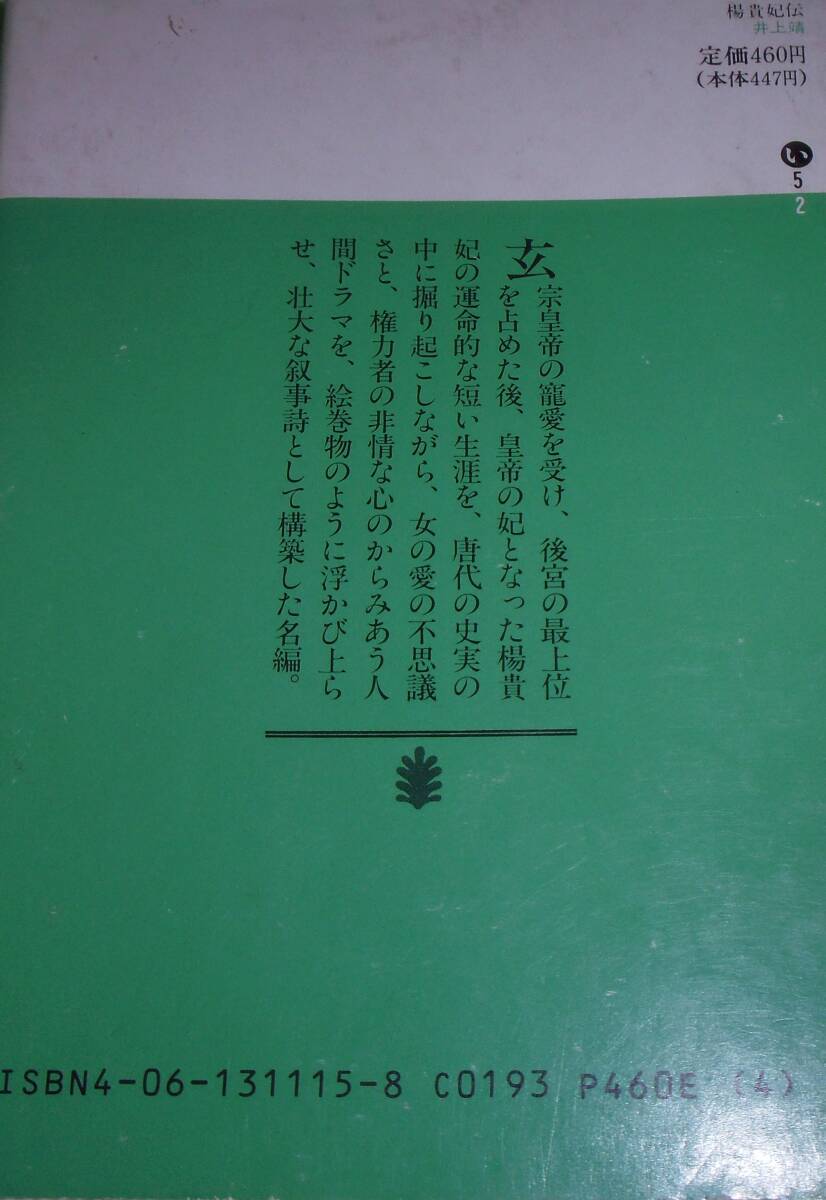 楊貴妃伝
井上靖
定価460円
(本体447円)
い
5
2
玄宗皇帝の寵愛を受け、後宮の最上位
を占めた後、皇帝の妃となった楊貴
妃の運命的な短い生涯を、唐代の史実の
中に掘り起こしながら、女の愛の不思議
さと、権力者の非情な心のからみあう人
間ドラマを、絵巻物のように浮かび上ら
せ、壮大な叙事詩として構築した名編。
ISBN4-06-131115-8 C0193 P460E (4)